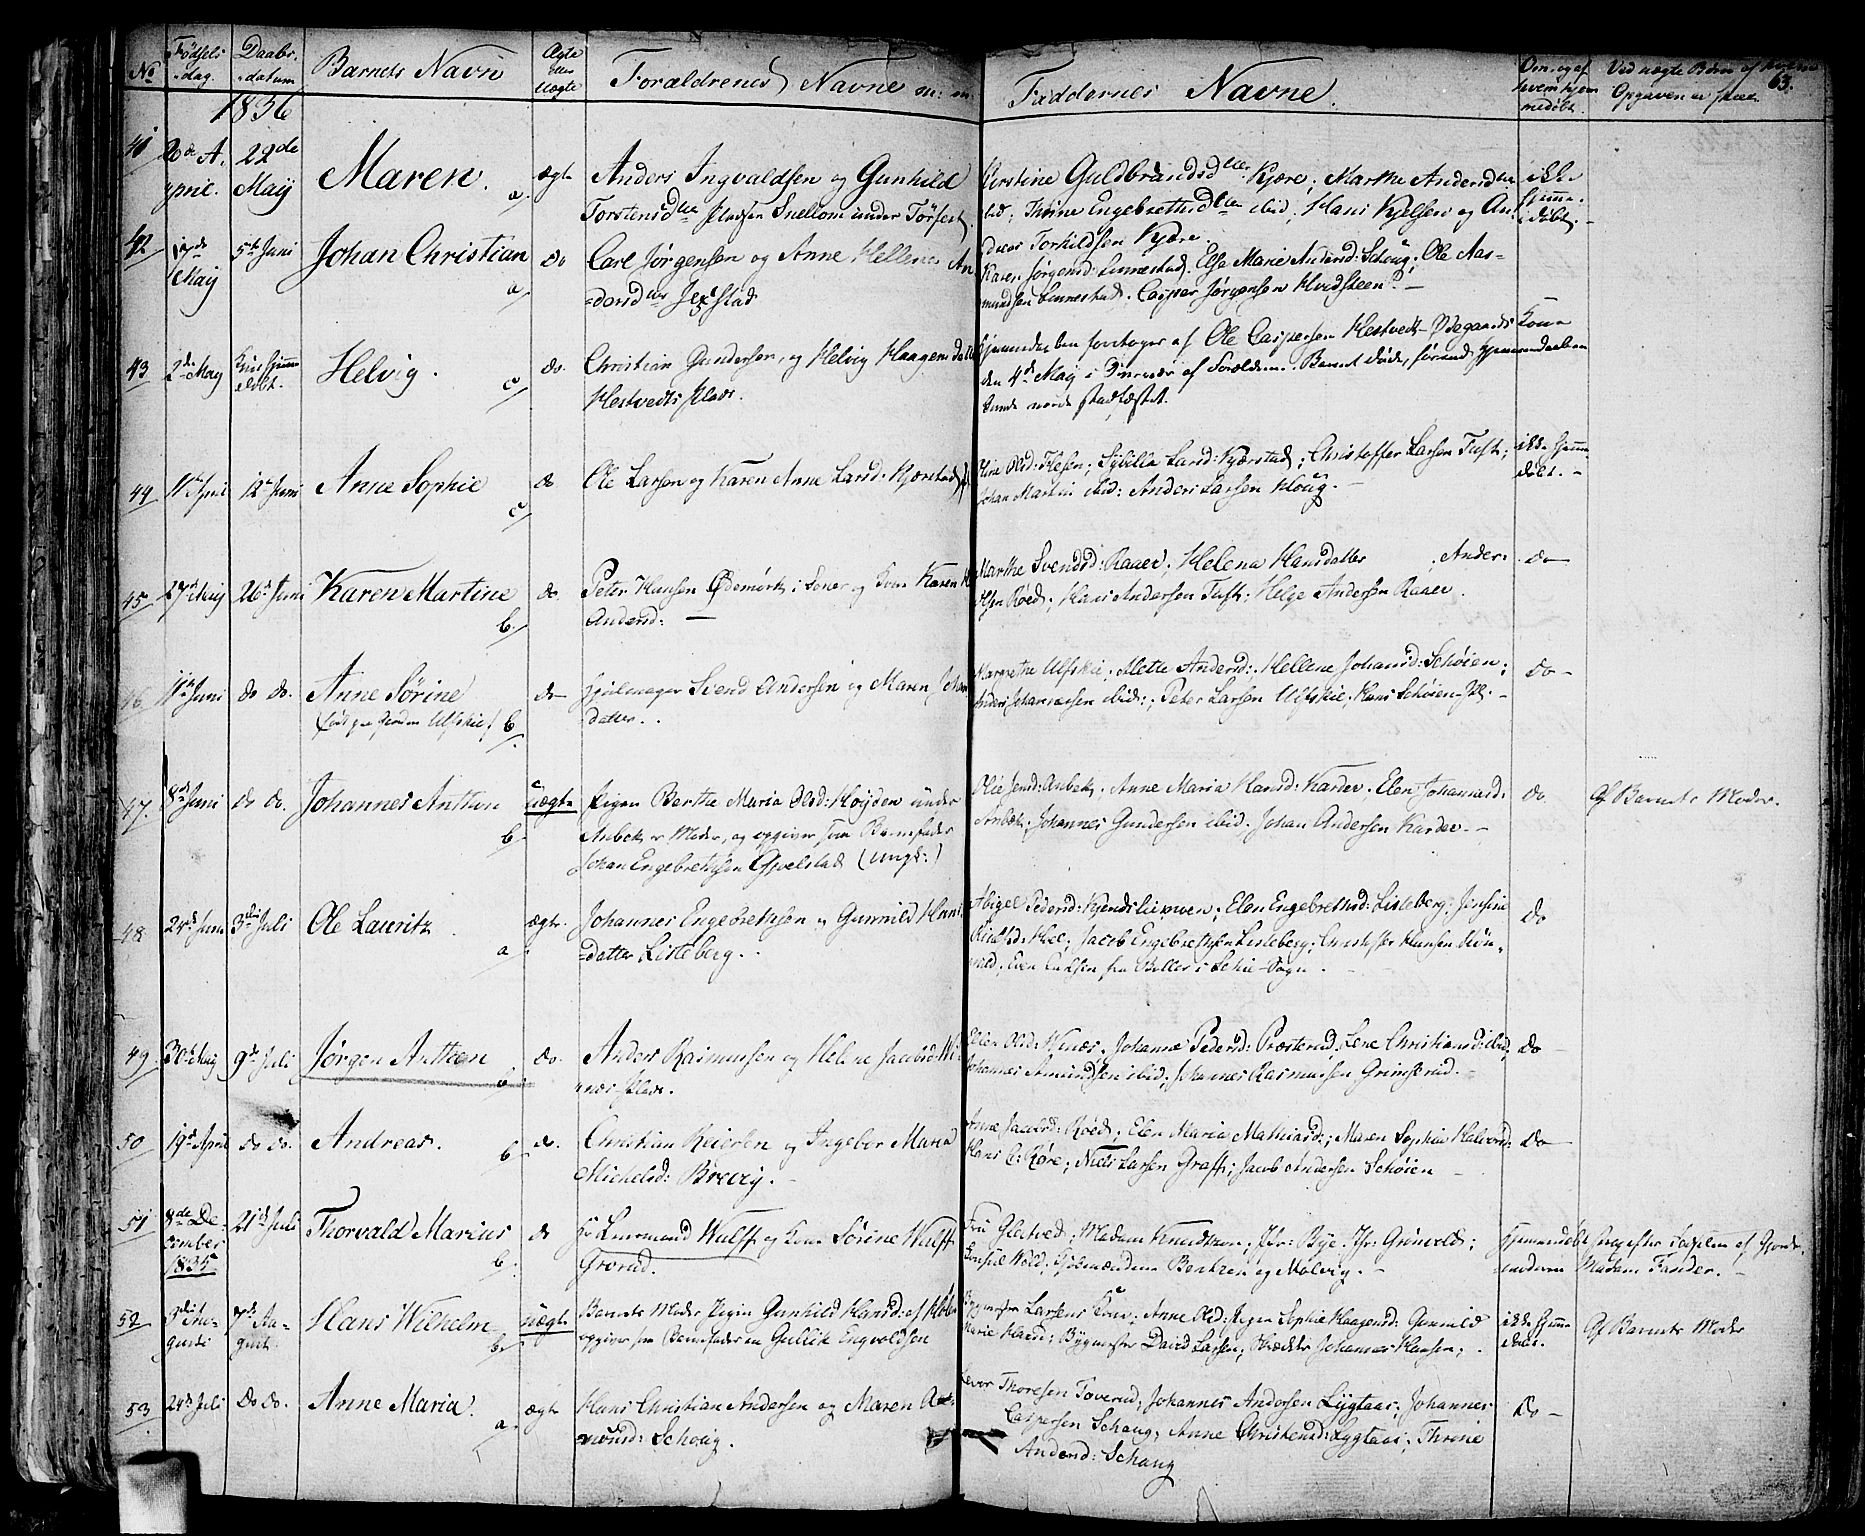 No
Fødsels
-dag.
Daabs-
-datum
Barnets Navn
Ægte
eller
Uægte
Forældrenes Navne m: m:
Faddernes Navne.
Om og af
hvem hjem
medøbt.
Ved uægte Børn af
Opgaven er skeet
63.
1836
41
20de A-
pril.
22de
Maij
Maren.
a.
ægte
Anders Ingvaldsen og Gunhild
Torstensdtter Pladsen Snellom under
Kirstine Guldbrandsdtter Kjære; Marthe Andersdtter
ibid; Thrine Engebrethsdtter ibid. Hans Kjelsen og An-
dreas Torkildsen Kjære.
ikke
hjemme-
døbt.
42
17de
Maij
5te Juni
Johan Christian
a/
do
Carl Jørgensen og Anne Hellene An-
-dersdtter Jexstad
Karen Jørgensd: Linnestad. Else Marie Andersd: Schoug; Ole Aas-
mundsen Linnestad. Casper Jørgensen Hvidsteen.
43
2de Maij
Kun hjemme
døbt.
Helvig.
c/
do.
Christian Gundersen, og Helvig Haagensdatter
Hestvedts Plads.
Hjemmedaaben foretages af Ole Caspersen Hestvedt-Ødegaards Kone
den 4de Maij i Nærvær af Forældrene. Barnet døde, førend Hjemmedaaben
kunde vorde stadfæstet.
44
11te April
12te Juni
Anne Sophie
c/
do
Ole Larsen og Karen Anne Larsd: Kjærstad
Oline Olsd: Hesen; Sybilla Larsd: Kjærstad; Christoffer Larsen Tuft;
Johan Martin ibid: Anders Larsen Houg.
ikke hjemme-
døbt.
45
27de Maij
26de Juni
Karen Martine
b/
do.
Peter Hansen Ødemørk i Soner og Kone Karen
Andersd:
Marthe Svendsd: Raaer; Helena Hansdatter Ander-
sen Røed; Hans Andersen Tuft; Helge Andersen Raaer.
do
46
11te Juni
do do.
Anne Sørine
(født paa Gaarden Ulfskie)
b/
do
Hjulmager Svend Andersen og Maren Johan-
datter.
Margrethe Ulfskie. Mette Andersd: Hellene Johansd: Schøien;
Anders Johannesen ibid: Peter Larsen Ulfskie. Hans Schøien-Pl:
do
47.
8de Juni
do do.
Johannes Anthon
b
uægte
Pigen Berthe Maria Olsd: Høyden under
Anbek er Moder, og opgiver som Barnefader
Johan Engebrethsen Gjvelstad (ungk:)
Anbek. Anne Maria Hansd: Karder. Elen Johannesd:
Anbek. Johannes Gundersen ibid. Johan Andersen Karder.
do.
Af Barnets Moder.
48
24de Juni
3die Juli
Ole Lauritz
a
ægte.
Johannes Engebrethsen og Gunnild Hans-
-datter Lisleberg.
Abigel Pedersd: Elen Engebrethsd: Lisleberg; Jensine
Jacob Engebrethsen Lisleberg; Christoffer Hansen
Even fra Beller i Schie-Sogn.
do
49
30 Maij
9de Juli
Jørgen Anthon
b
do.
Anders Rasmussen og Helene Jacobsd: Wi-
næs Plads.
Elen Olsd: Winæs. Johanne Pedersd: Præsterud. Lene Christiansd: ibid.
Johannes Amundsen ibid; Johannes Rasmussen Grimsrud.
do
50
19de April
do do.
Andreas.
b
do.
Christian Reiersen og Ingebor Maria
Michelsd: Brevig.
Anne Jacobsd: Røed; Elen Maria Mathiasd:; Maren Sophia Halvorsd:
Hans C: Røre; Niels Larsen Graff; Jacob Andersen Schøien
do
51
8de De-
cember
1835
21de Juli
Thorvald Marius
b.
do
Hr Leusmand Wulff og Kone Sørine Wulff
Grorud.
Fru Glestved; Madam Knudtzon; Jfr: Bye. Jfr: Grønvold;
Consul Wold; Kjøbmændene Bentzen og Molvig.
hjemmedøbt
Ifølge efter Forplen af Gjorde-
moderen Madam Fander.
52
3die Au-
gusti
7de Au-
gust.
Hans Wilhelm
b.
uægte
Barnets Moder Pigen Gunhild Hansd: af
opgiver som Barnefader en Gullik Engvoldsen
Bygmester Larsens Kone; Anne Olsd: Pigen Sophie Haagensd: Gunnild
Marie Hansd: Bygmester David Larsen; Skrædder Johannes Hansen;
ikke hjemme
døbt.
Af Barnets Moder
53
24de Juli
do do.
Anne Maria.
a
ægte
Hans Christian Andersen og Maren Aas-
mundsd: Schoug.
Lever Thoresen Toverud; Johannes Andersen Lygtaas; Johannes
Caspersen Schoug; Anne Christensd: Lygtaas; Thrine
Andersd: Schoug
do